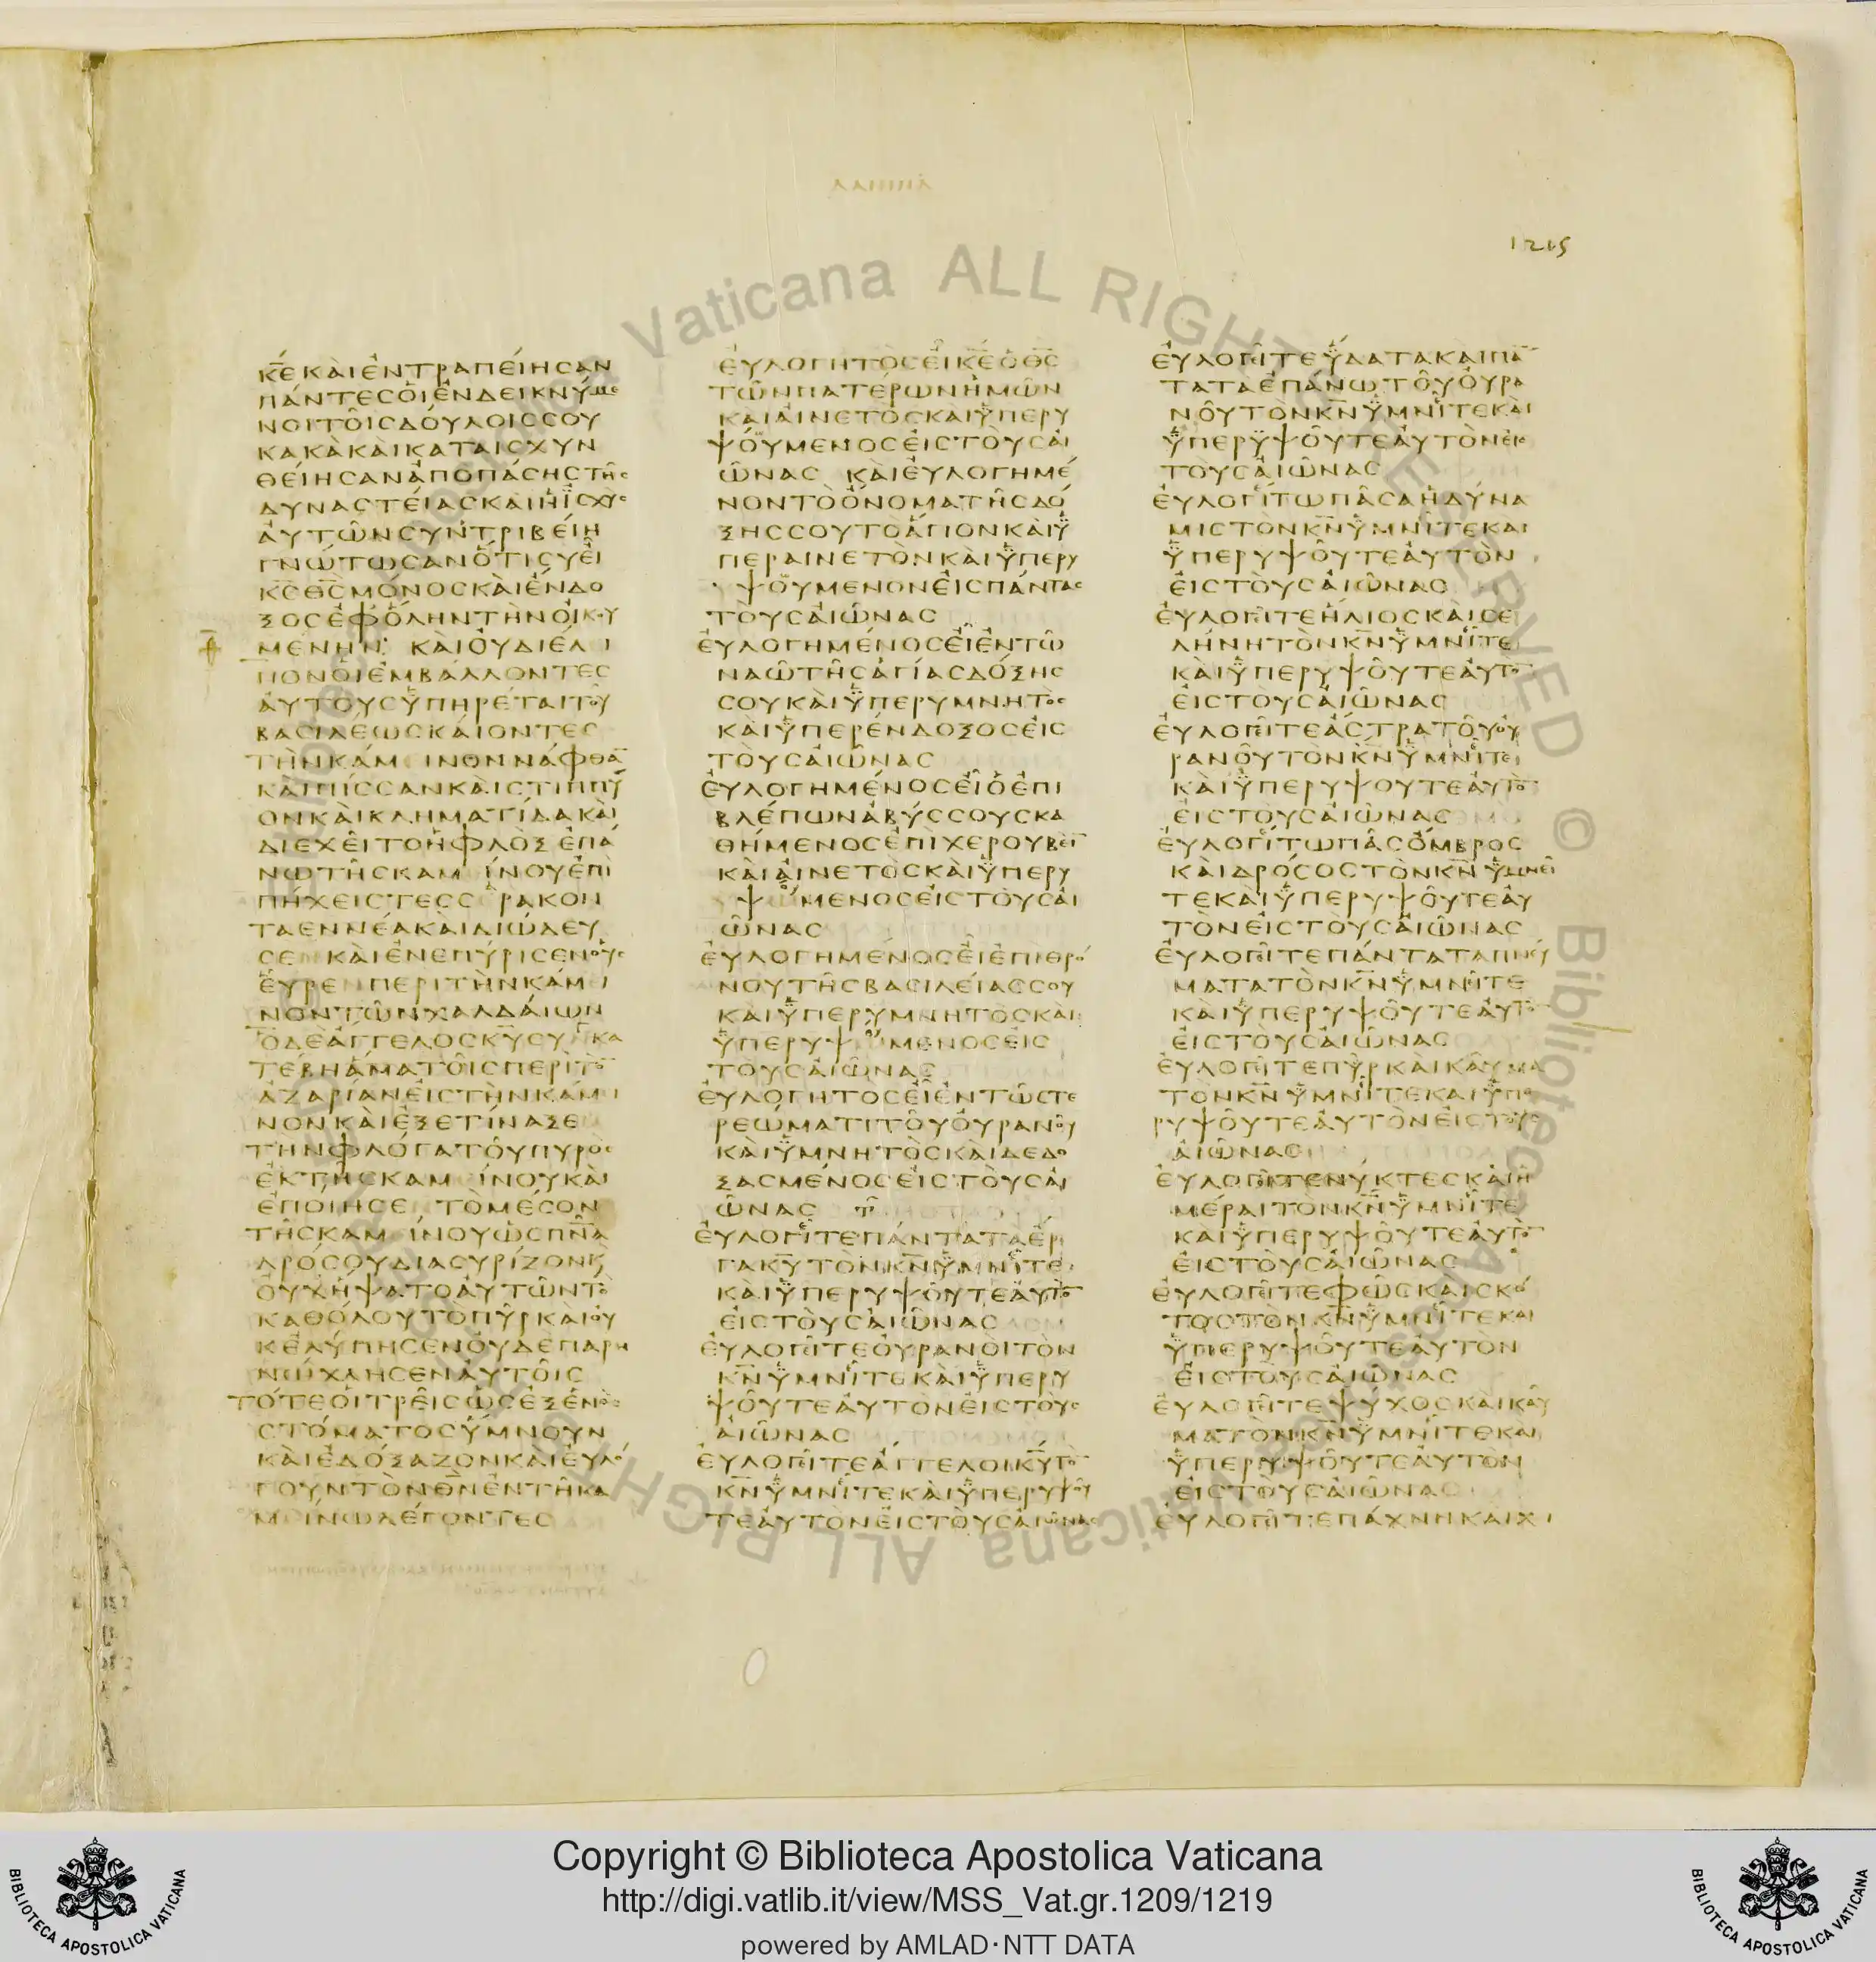 ΔΑΝΙΗΛ
1215
Κ̅Ε̅ ΚΑΙ ΕΝΤΡΑΠΕΙΗСΑΝ
ΠΑΝΤΕС ΟΙ ΕΝΔΕΙΚΝΥΜΕ
ΝΟΙ ΤΟΙС ΔΟΥΛΟΙС СΟΥ
ΚΑΚΑ ΚΑΙ ΚΑΤΑΙСΧΥΝ
ΘΕΙΗСΑΝ ΑΠΟ ΠΑСΗС ΤΗС
ΔΥΝΑСΤΕΙΑС ΚΑΙ Η ΙСΧΥС
ΑΥΤΩΝ СΥΝΤΡΙΒΕΙΗ
ΓΝΩΤΩСΑΝ ΟΤΙ СΥ ΕΙ
Κ̅С̅ Θ̅С̅ ΜΟΝΟС ΚΑΙ ΕΝΔΟ
ΞΟС ΕΦ ΟΛΗΝ ΤΗΝ ΟΙΚΟΥ
ΜΕΝΗΝ: ΚΑΙ ΟΥ ΔΙΕΛΙ
ΠΟΝ ΟΙ ΕΜΒΑΛΛΟΝΤΕС
ΑΥΤΟΥС ΥΠΗΡΕΤΑΙ ΤΟΥ
ΒΑСΙΛΕΩС ΚΑΙΟΝΤΕС
ΤΗΝ ΚΑΜΙΝΟΝ ΝΑΦΘΑ̅
ΚΑΙ ΠΙССΑΝ ΚΑΙ СΤΙΠΠΥ
ΟΝ ΚΑΙ ΚΛΗΜΑΤΙΔΑ ΚΑΙ
ΔΙΕΧΕΙΤΟ Η ΦΛΟΞ ΕΠΑ
ΝΩ ΤΗС ΚΑΜΙΝΟΥ ΕΠΙ
ΠΗΧΕΙС ΤΕССΕΡΑΚΟΝ
ΤΑ ΕΝΝΕΑ ΚΑΙ ΔΙΩΔΕΥ
СΕΝ ΚΑΙ ΕΝΕΠΥΡΙСΕΝ ΟΥС
ΕΥΡΕΝ ΠΕΡΙ ΤΗΝ ΚΑΜΙ
ΝΟΝ ΤΩΝ ΧΑΛΔΑΙΩΝ
Ο ΔΕ ΑΓΓΕΛΟС Κ̅Υ̅ СΥΓΚΑ
ΤΕΒΗ ΑΜΑ ΤΟΙС ΠΕΡΙ ΤΟ̅
ΑΖΑΡΙΑΝ ΕΙС ΤΗΝ ΚΑΜΙ
ΝΟΝ ΚΑΙ ΕΞΕΤΙΝΑΞΕ
ΤΗΝ ΦΛΟΓΑ ΤΟΥ ΠΥΡΟС
ΕΚ ΤΗС ΚΑΜΙΝΟΥ ΚΑΙ
ΕΠΟΙΗСΕ ΤΟ ΜΕСΟΝ
ΤΗС ΚΑΜΙΝΟΥ ΩС Π̅Ν̅Α̅
ΔΡΟСΟΥ ΔΙΑСΥΡΙΖΟΝ Κ
ΟΥΧ ΗΨΑΤΟ ΑΥΤΩΝ ΤΟ
ΚΑΘΟΛΟΥ ΤΟ ΠΥΡ ΚΑΙ ΟΥ
Κ ΕΛΥΠΗСΕΝ ΟΥΔΕ ΠΑΡΗ
ΝΩΧΛΗСΕΝ ΑΥΤΟΙС
ΤΟΤΕ ΟΙ ΤΡΕΙС ΩС ΕΞ ΕΝΟС
СΤΟΜΑΤΟС ΥΜΝΟΥΝ
ΚΑΙ ΕΔΟΞΑΖΟΝ ΚΑΙ ΕΥΛΟ
ΓΟΥΝ ΤΟΝ Θ̅Ν̅ ΕΝ ΤΗ ΚΑ
ΜΙΝΩ ΛΕΓΟΝΤΕС
ΕΥΛΟΓΗΤΟС ΕΙ Κ̅Ε̅ Ο Θ̅С̅
ΤΩΝ ΠΑΤΕΡΩΝ ΗΜΩΝ
ΚΑΙ ΑΙΝΕΤΟС ΚΑΙ ΥΠΕΡΥ
ΨΟΥΜΕΝΟС ΕΙС ΤΟΥС ΑΙ
ΩΝΑС ΚΑΙ ΕΥΛΟΓΗΜΕ
ΝΟΝ ΤΟ ΟΝΟΜΑ ΤΗС ΔΟ
ΞΗС СΟΥ ΤΟ ΑΓΙΟΝ ΚΑΙ Υ
ΠΕΡΑΙΝΕΤΟΝ ΚΑΙ ΥΠΕΡΥ
ΨΟΥΜΕΝΟΝ ΕΙС ΠΑΝΤΑС
ΤΟΥС ΑΙΩΝΑС
ΕΥΛΟΓΗΜΕΝΟС ΕΙ ΕΝ ΤΩ
ΝΑΩ ΤΗС ΑΓΙΑС ΔΟΞΗС
СΟΥ ΚΑΙ ΥΠΕΡΥΜΝΗΤΟС
ΚΑΙ ΥΠΕΡΕΝΔΟΞΟС ΕΙС
ΤΟΥС ΑΙΩΝΑС
ΕΥΛΟΓΗΜΕΝΟС ΕΙ Ο ΕΠΙ
ΒΛΕΠΩΝ ΑΒΥССΟΥС ΚΑ
ΘΗΜΕΝΟС ΕΠΙ ΧΕΡΟΥΒΕΙ̅
ΚΑΙ ΑΙΝΕΤΟС ΚΑΙ ΥΠΕΡΥ
ΨΟΥΜΕΝΟС ΕΙС ΤΟΥС ΑΙ
ΩΝΑС
ΕΥΛΟΓΗΜΕΝΟС ΕΙ ΕΠΙ ΘΡΟ
ΝΟΥ ΤΗС ΒΑСΙΛΕΙΑС СΟΥ
ΚΑΙ ΥΠΕΡΥΜΝΗΤΟС ΚΑΙ
ΥΠΕΡΥΨΟΥΜΕΝΟС ΕΙС
ΤΟΥС ΑΙΩΝΑС
ΕΥΛΟΓΗΤΟС ΕΙ ΕΝ ΤΩ СΤΕ
ΡΕΩΜΑΤΙ ΤΟΥ ΟΥΡΑΝΟΥ
ΚΑΙ ΥΜΝΗΤΟС ΚΑΙ ΔΕΔΟ
ΞΑСΜΕΝΟС ΕΙС ΤΟΥС ΑΙ
ΩΝΑС
ΕΥΛΟΓΕΙΤΕ ΠΑΝΤΑ ΤΑ ΕΡ
ΓΑ Κ̅Υ̅ ΤΟΝ Κ̅Ν̅ ΥΜΝΕΙΤΕ
ΚΑΙ ΥΠΕΡΥΨΟΥΤΕ ΑΥΤΟ̅
ΕΙС ΤΟΥС ΑΙΩΝΑС
ΕΥΛΟΓΕΙΤΕ ΟΥΡΑΝΟΙ ΤΟΝ
Κ̅Ν̅ ΥΜΝΕΙΤΕ ΚΑΙ ΥΠΕΡΥ
ΨΟΥΤΕ ΑΥΤΟΝ ΕΙС ΤΟΥС
ΑΙΩΝΑС
ΕΥΛΟΓΕΙΤΕ ΑΓΓΕΛΟΙ Κ̅Υ̅ ΤΟ̅
Κ̅Ν̅ ΥΜΝΕΙΤΕ ΚΑΙ ΥΠΕΡΥΨΟΥ
ΤΕ ΑΥΤΟΝ ΕΙС ΤΟΥС ΑΙΩΝΑС
ΕΥΛΟΓΕΙΤΕ ΥΔΑΤΑ ΚΑΙ ΠΑ̅
ΤΑ ΤΑ ΕΠΑΝΩ ΤΟΥ ΟΥΡΑ
ΝΟΥ ΤΟΝ Κ̅Ν̅ ΥΜΝΕΙΤΕ ΚΑΙ
ΥΠΕΡΥΨΟΥΤΕ ΑΥΤΟΝ ΕΙС
ΤΟΥС ΑΙΩΝΑС
ΕΥΛΟΓΕΙΤΩ ΠΑСΑ Η ΔΥΝΑ
ΜΙС ΤΟΝ Κ̅Ν̅ ΥΜΝΕΙΤΕ ΚΑΙ
ΥΠΕΡΥΨΟΥΤΕ ΑΥΤΟΝ
ΕΙС ΤΟΥС ΑΙΩΝΑС
ΕΥΛΟΓΕΙΤΕ ΗΛΙΟС ΚΑΙ СΕ
ΛΗΝΗ ΤΟΝ Κ̅Ν̅ ΥΜΝΕΙΤΕ
ΚΑΙ ΥΠΕΡΥΨΟΥΤΕ ΑΥΤΟ̅
ΕΙС ΤΟΥС ΑΙΩΝΑС
ΕΥΛΟΓΕΙΤΕ ΑСΤΡΑ ΤΟΥ ΟΥ
ΡΑΝΟΥ ΤΟΝ Κ̅Ν̅ ΥΜΝΕΙΤΕ
ΚΑΙ ΥΠΕΡΥΨΟΥΤΕ ΑΥΤΟ̅
ΕΙС ΤΟΥС ΑΙΩΝΑС
ΕΥΛΟΓΕΙΤΩ ΠΑС ΟΜΒΡΟС
ΚΑΙ ΔΡΟСΟС ΤΟΝ Κ̅Ν̅ ΥΜΝΕΙ
ΤΕ ΚΑΙ ΥΠΕΡΥΨΟΥΤΕ ΑΥ
ΤΟΝ ΕΙС ΤΟΥС ΑΙΩΝΑС
ΕΥΛΟΓΕΙΤΕ ΠΑΝΤΑ ΤΑ ΠΝΕΥ
ΜΑΤΑ ΤΟΝ Κ̅Ν̅ ΥΜΝΕΙΤΕ
ΚΑΙ ΥΠΕΡΥΨΟΥΤΕ ΑΥΤΟ̅
ΕΙС ΤΟΥС ΑΙΩΝΑС
ΕΥΛΟΓΕΙΤΕ ΠΥΡ ΚΑΙ ΚΑΥΜΑ
ΤΟΝ Κ̅Ν̅ ΥΜΝΕΙΤΕ ΚΑΙ ΥΠΕ
ΡΥΨΟΥΤΕ ΑΥΤΟΝ ΕΙС ΤΟΥС
ΑΙΩΝΑС
ΕΥΛΟΓΕΙΤΕ ΝΥΚΤΕС ΚΑΙ Η
ΜΕΡΑΙ ΤΟΝ Κ̅Ν̅ ΥΜΝΕΙΤΕ
ΚΑΙ ΥΠΕΡΥΨΟΥΤΕ ΑΥΤΟ̅
ΕΙС ΤΟΥС ΑΙΩΝΑС
ΕΥΛΟΓΕΙΤΕ ΦΩС ΚΑΙ СΚΟ
ΤΟС ΤΟΝ Κ̅Ν̅ ΥΜΝΕΙΤΕ ΚΑΙ
ΥΠΕΡΥΨΟΥΤΕ ΑΥΤΟΝ
ΕΙС ΤΟΥС ΑΙΩΝΑС
ΕΥΛΟΓΕΙΤΕ ΨΥΧΟС ΚΑΙ ΚΑΥ
ΜΑ ΤΟΝ Κ̅Ν̅ ΥΜΝΕΙΤΕ ΚΑΙ
ΥΠΕΡΥΨΟΥΤΕ ΑΥΤΟΝ
ΕΙС ΤΟΥС ΑΙΩΝΑС
ΕΥΛΟΓΕΙΤΕ ΠΑΧΝΗ ΚΑΙ ΧΙ
Vaticana ALL RIGHTS RESERVED © Biblioteca Apostolica Vaticana ALL RIGHTS RESERVED
Copyright © Biblioteca Apostolica Vaticana
http://digi.vatlib.it/view/MSS_Vat.gr.1209/1219
powered by AMLAD·NTT DATA
BIBLIOTECA APOSTOLICA VATICANA
BIBLIOTECA APOSTOLICA VATICANA